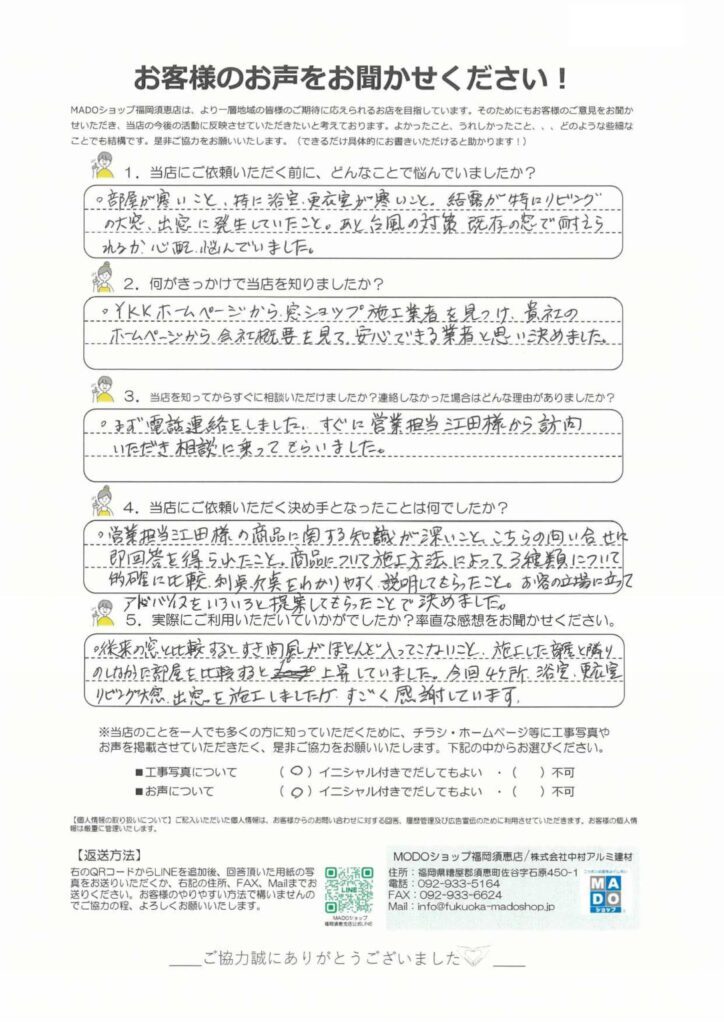 お客様のお声をお聞かせください！
MADOショップ福岡須恵店は、より一層地域の皆様のご期待に応えられるお店を目指しています。そのためにもお客様のご意見をお聞か
せいただき、当店の今後の活動に反映させていただきたいと考えております。よかったこと、うれしかったこと、、、どのような些細な
ことでも結構です。是非ご協力をお願いいたします。（できるだけ具体的にお書きいただけると助かります！）
1．当店にご依頼いただく前に、どんなことで悩んでいましたか？
○部屋が寒いこと、特に浴室、更衣室が寒いこと。結露が特にリビング
の大窓、出窓に発生していたこと。あと台風の対策 既存の窓で耐えら
れるか心配、悩んでいました。
2．何がきっかけで当店を知りましたか？
○YKKホームページから、窓ショップ施工業者を見つけ、貴社の
ホームページから、会社概要を見て、安心できる業者と思い決めました。
3．当店を知ってからすぐに相談いただけましたか？連絡しなかった場合はどんな理由がありましたか？
○まず電話連絡をしました、すぐに営業担当江田様から訪問
いただき相談に乗ってもらいました。
4．当店にご依頼いただく決め手となったことは何でしたか？
○営業担当江田様の商品に関する知識が深いこと、こちらの問い合せに
即回答を得られたこと。商品について施工方法によって3種類について
的確に比較、利点欠点をわかりやすく説明してもらったこと。お客の立場に立って
アドバイスをいろいろと提案してもらったことで決めました。
5．実際にご利用いただいていかがでしたか？率直な感想をお聞かせください。
○従来の窓と比較するとすき間風がほとんど入ってこないこと、施工した部屋と隣り
のしなかった部屋を比較すると 上昇していました。今回4ヶ所、浴室、更衣室
リビング大窓、出窓を施工しましたが、すごく感謝しています。
※当店のことを一人でも多くの方に知っていただくために、チラシ・ホームページ等に工事写真や
お声を掲載させていただきたく、是非ご協力をお願いいたします。下記の中からお選びください。
■工事写真について （○）イニシャル付きでだしてもよい ・（ ）不可
■お声について （○）イニシャル付きでだしてもよい ・（ ）不可
【個人情報の取り扱いについて】ご記入いただいた個人情報は、お客様からのお問い合わせに対する回答、履歴管理及び広告宣伝のために利用させていただきます。お客様の個人情
報は厳重に管理いたします。
【返送方法】
右のQRコードからLINEを追加後、回答頂いた用紙の写
真をお送りいただくか、右記の住所、FAX、Mailまでお
送りください。お客様のやりやすい方法で構いませんの
でご協力の程、よろしくお願いいたします。
LINE
MADOショップ
福岡須恵店公式LINE
MADOショップ福岡須恵店/株式会社中村アルミ建材
住所：福岡県糟屋郡須恵町佐谷字石原450-1
電話：092-933-5164
FAX：092-933-6624
Mail：info@fukuoka-madoshop.jp
MA
DO
ショップ
ご協力誠にありがとうございました